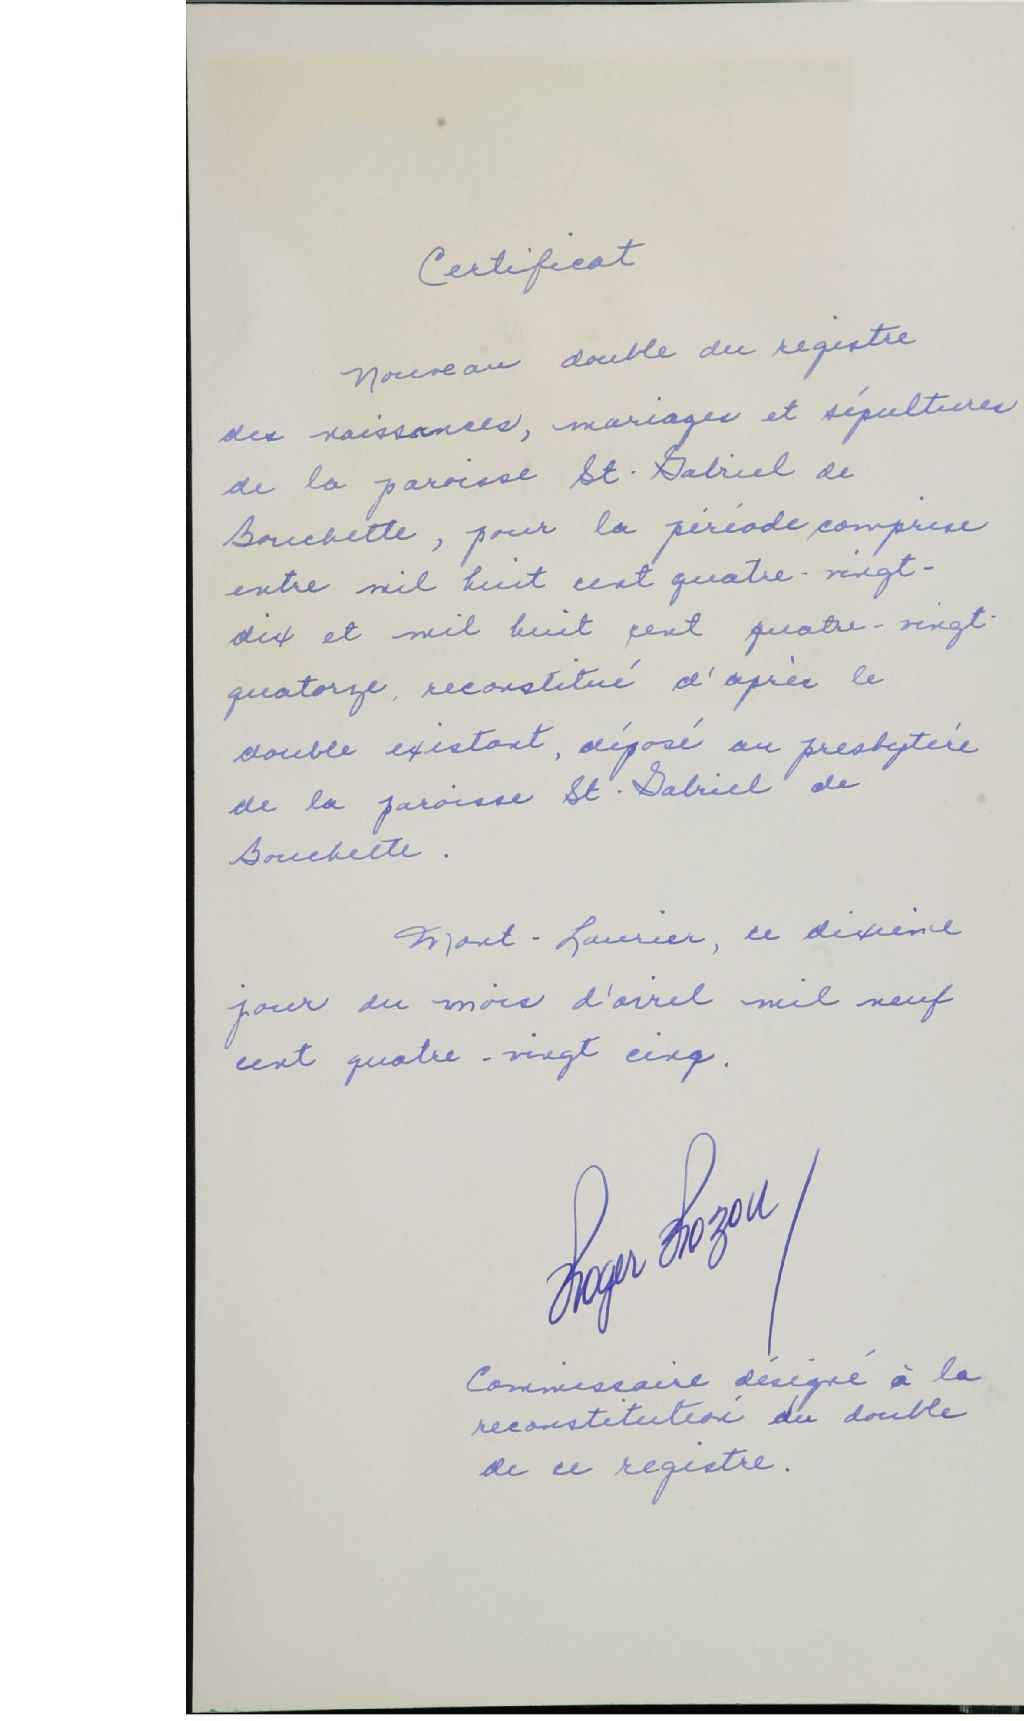 Certificat
Nouveau double du registre
des naissances, mariages et sépultures
de la paroisse St. Gabriel de
Bouchette, pour la période comprise
entre mil huit cent quatre-vingt-
dix et mil huit cent quatre-vingt-
quatorze, reconstitué d'après le
double existant, déposé au presbytère
de la paroisse St. Gabriel de
Bouchette.
Mont-Laurier, ce dixième
jour du mois d'avril mil neuf
cent quatre-vingt cinq.
Roger Rozon
Commissaire désigné à la
reconstitution du double
de ce registre.